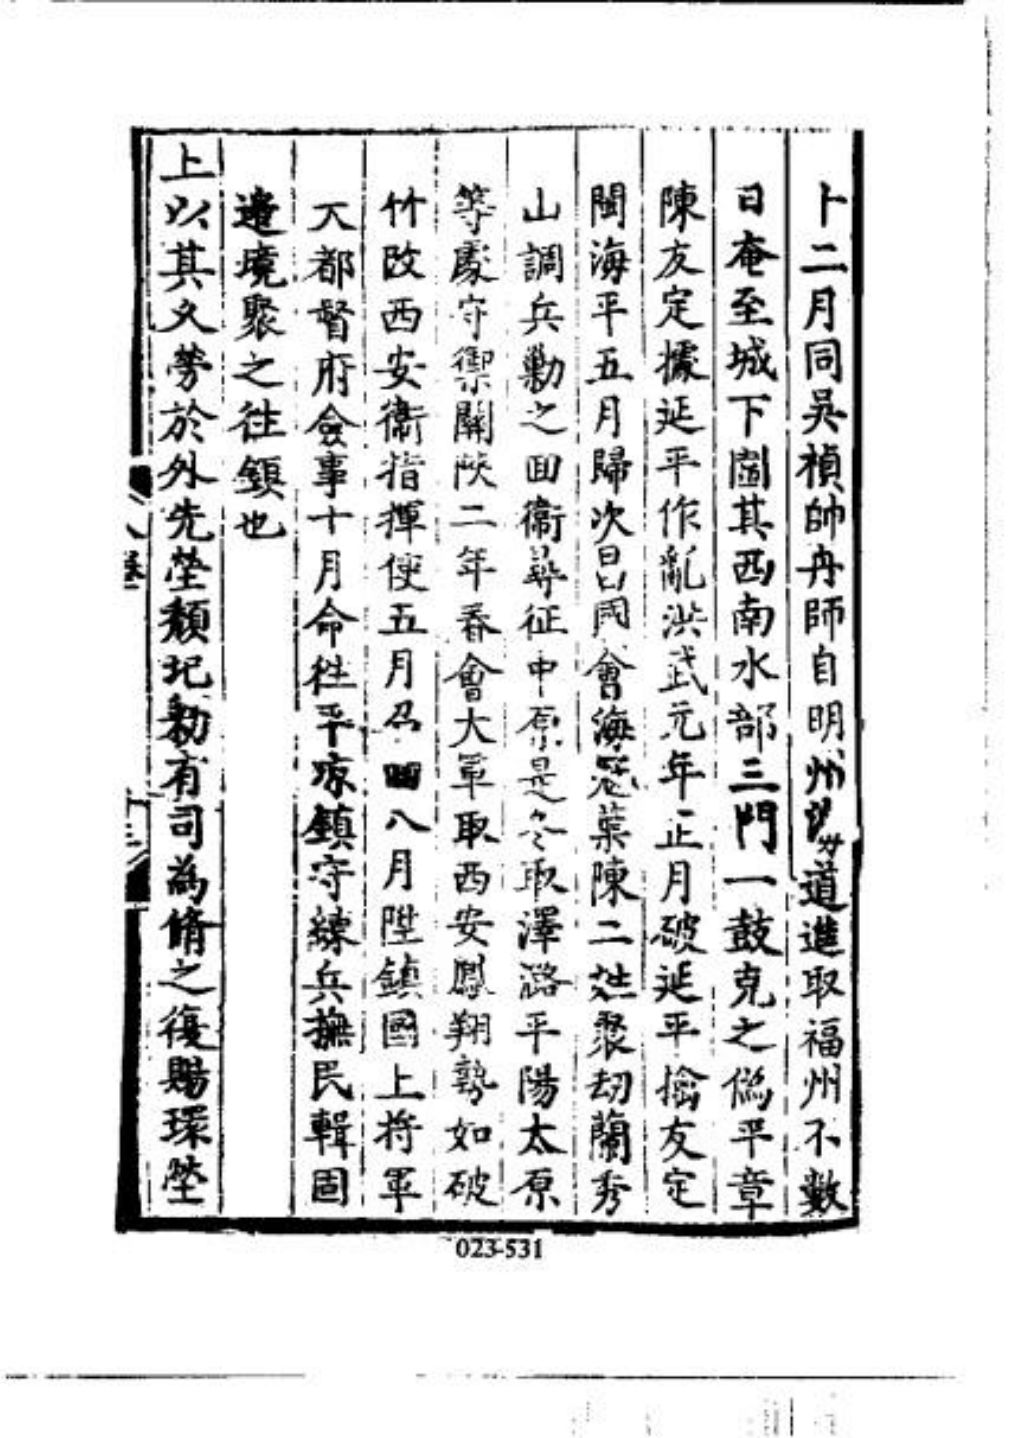 卜二月同吳禎帥舟師自明州海道進取福州不數
日奄至城下圍其西南水部三門一鼓克之僞平章
陳友定據延平作亂洪武元年正月破延平擒友定
閩海平五月歸次昌國會海冦葉陳二姓聚刼蘭秀
山調兵勦之回衞尋征中原是冬取澤潞平陽太原
等處守禦關陝二年春會大軍取西安鳳翔勢如破
竹改西安衞指揮使五月召回八月陞鎮國上將軍
大都督府僉事十月命往平凉鎮守練兵撫民輯固
邉境聚之往鎮也
上以其久勞於外先塋頽圮勑有司為脩之復賜環塋
023-531